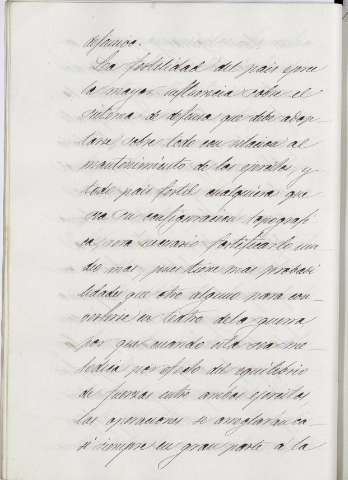 defensiva.
La fertilidad del pais ejerce
la mayor influencia sobre el
sistema de defensa que debe adop-
tarse sobre todo con relacion al
mantenimiento de los ejercitos, y
todo pais fertil cualquiera que
sea su configuracion topografi
ca sera necesario fortificarle mu-
cho mas, pues tiene mas probabi
lidades que otro alguno para con-
vertirse en teatro de la guerra
por que cuando esta sea me-
todica por efecto del equilibrio
de fuerzas entre ambos ejercitos
las operaciones se arreglarán ca-
si siempre en gran parte a la